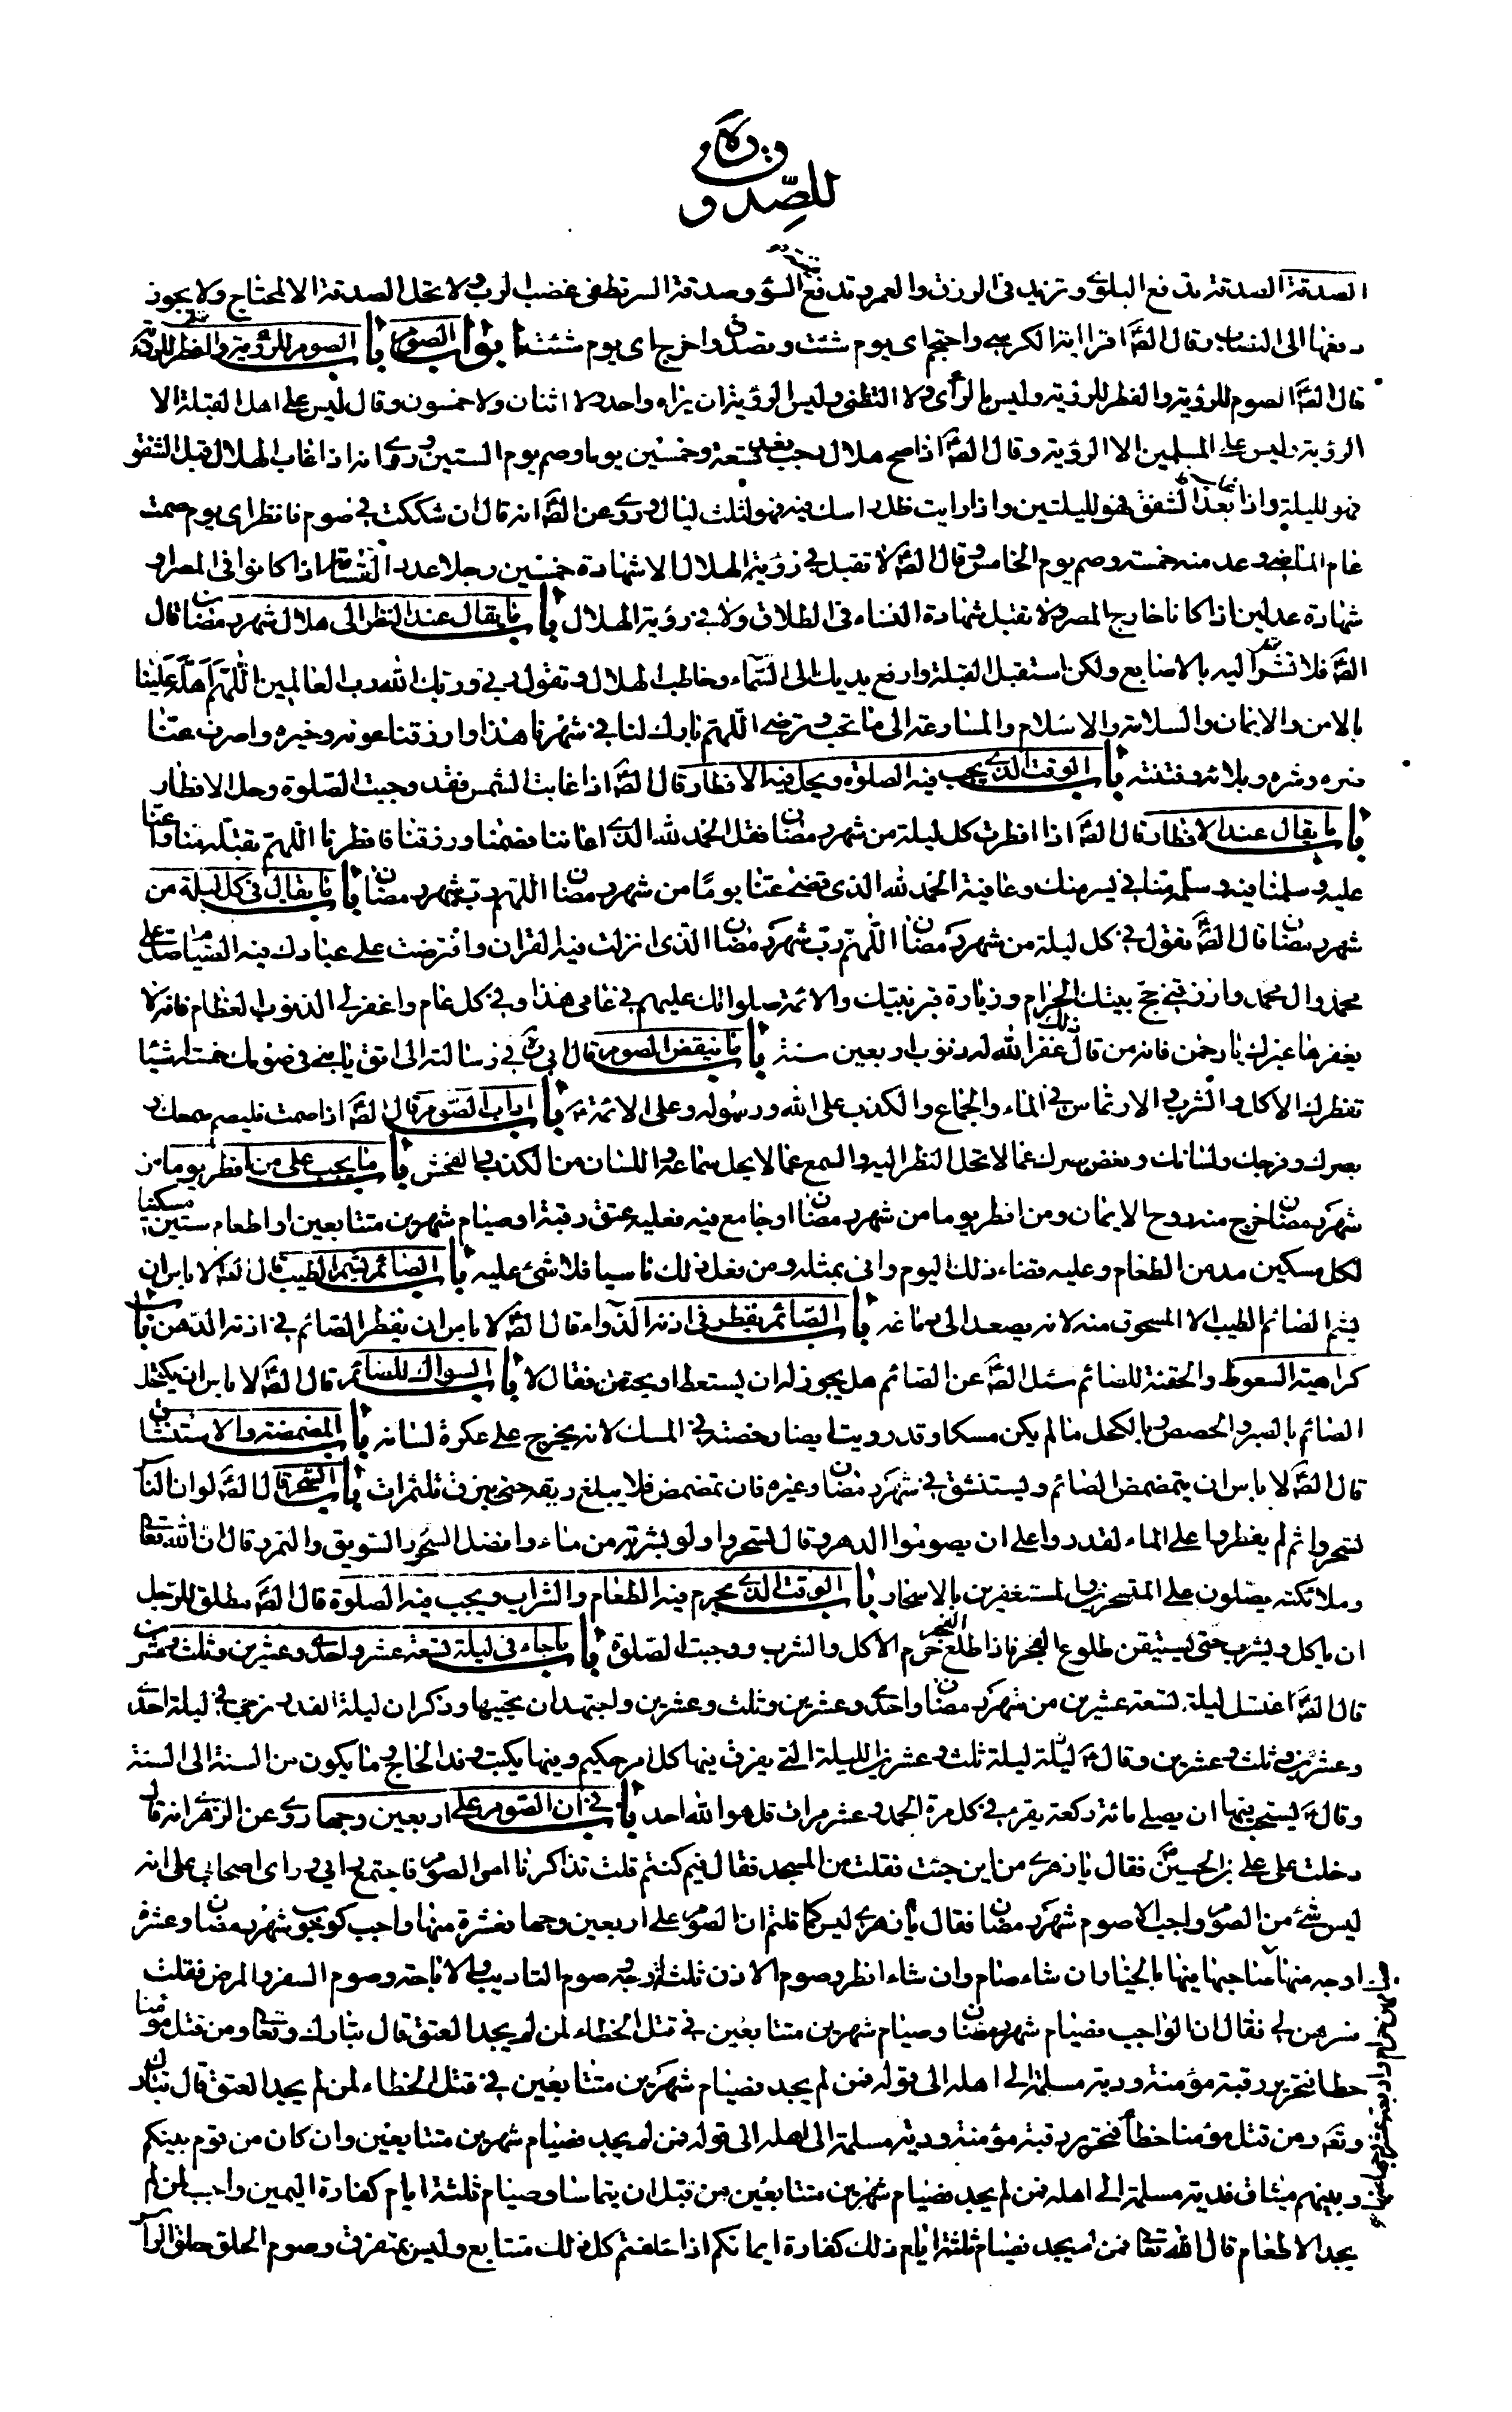 للصدوق ره
الصدقة الصدقة تدفع البلوى وتزيد فى الرزق والعمر وتدفع ميتة السوء وصدقة السر تطفى غضب الرب ولا تحل الصدقة الا لمحتاج ولا يجوز
دفعها الى النصاب وقال الصّ اقرا اية الكرسى واحتجم اى يوم شئت وتصدق واخرج اى يوم شئت ابواب الصوم باب الصوم للرؤية والفطر للرؤية
قال الصّ الصوم للرؤية والفطر للرؤية وليس بالرأى ولا التظنى وليس الرؤية ان يراه واحد ولا اثنان ولا خمسون وقال ليس على اهل القبلة الا
الرؤية وليس على المسلمين الا الرؤية وقال الصّ اذا صح هلال رجب فعد تسعة وخمسين يوما وصم يوم الستين وروى انه اذا غاب الهلال قبل الشفق
فهو لليلة واذا غاب بعد الشفق فهو لليلتين واذا رايت ظل راسك فيه فهو لثلث ليال وروى عن الصّ انه قال ان شككت فى صوم فانظر اى يوم صمت
عام الماضى وعد منه خمسة وصم يوم الخامس وقال الصّ لا تقبل فى رؤية الهلال الا شهادة خمسين رجلا عدد القسامة اذا كانوا فى المصر او
شهادة عدلين اذا كانا خارج المصر ولا تقبل شهادة النساء فى الطلاق ولا فى رؤية الهلال باب ما يقال عند النظر الى هلال شهر رمضان قال
الصّ فلا تشر اليه بالاصابع ولكن استقبل القبلة وارفع يديك الى السّماء وخاطب الهلال وتقول ربى وربك الله رب العالمين اللّهمّ اهلّه علينا
بالامن والايمان والسلامة والاسلام والمسارعة الى ما تحب وترضى اللّهمّ بارك لنا فى شهرنا هذا وارزقنا عونه وخيره واصرف عنّا
ضره وشره وبلائه وفتنته باب الوقت الذى يجب فيه الصلوة ويحل فيه الافطار قال الصّ اذا غابت الشمس فقد وجبت الصّلوة وحل الافطار
باب ما يقال عند الافطار قال الصّ اذا افطرت كل ليلة من شهر رمضان فقل الحمد لله الذى اعاننا فصمنا ورزقنا فافطرنا اللّهم تقبّله منا واعنّا
عليه وسلمنا فيه وسلّمه منا فى يسر منك وعافية الحمد لله الذى قضى عنّا يومًا من شهر رمضان اللّهم رب شهر رمضان باب ما يقال فى كل ليلة من
شهر رمضان قال الصّ تقول فى كل ليلة من شهر رمضان اللّهمّ ربّ شهر رمضان الّذى انزلت فيه القران وافترضت على عبادك فيه الصيام صل على
محمد وال محمد وارزقنى حجّ بيتك الحرام وزيارة قبر نبيّك والائمة صلواتك عليهم فى عامى هذا وفى كل عام واغفر لى الذنوب العظام فانه لا
يغفرها غيرك يا رحمن فانه من قال ذلك غفر الله له ذنوب اربعين سنة باب ما ينقض الصوم قال ابى ره فى رسالته الى اتق يا بنى فى صومك خمسة اشياء
تفطرك الاكل والشرب والارتماس فى الماء والجماع والكذب على الله ورسوله وعلى الائمة ع باب اداب الصّوم قال الصّ اذا صمت فليصم سمعك و
بصرك وفرجك ولسانك وتغض بصرك عما لا تحل النظر اليه والسمع عما لا يحل سماعه واللسان من الكذب والفحش باب ما يجب على من افطر يوما من
شهر رمضان خرج منه روح الايمان ومن افطر يوما من شهر رمضان او جامع فيه فعليه عتق رقبة او صيام شهرين متتابعين او اطعام ستين مسكينا
لكل مسكين مد من الطعام وعليه قضاء ذلك اليوم وانى بمثله ومن فعل ذلك ناسيا فلا شئ عليه باب الصائم يشم الطيب قال الصّ لا باس ان
يشم الصائم الطيب الا المسحوق منه لانه يصعد الى دماغه باب الصّائم يقطر فى اذنه الدّواء قال الصّ لا باس ان يقطر الصّائم فى اذنه الدّهن باب
كراهية السعوط والحقنة للصائم سئل الصّ عن الصائم هل يجوز له ان يستعط او يحتقن فقال لا باب السواك للصائم قال الصّ لا باس ان يكتحل
الصائم بالصبر والحصص وبالكحل ما لم يكن مسكا وقد رويت ايضا رخصة فى المسك لانه يخرج على عكرة لسانه باب المضمضة والاستنشاق
قال الصّ لا باس ان يتمضمض الصائم ويستنشق فى شهر رمضان وغيره فان تمضمض فلا يبلع ريقه حتى يبزق ثلث مرات باب السّحور قال الصّ لو ان الناس
تسحروا ثم لم يفطروا على الماء لقدروا على ان يصوموا الدهر وقال تسحروا ولو بشربة من ماء وافضل السّحور السّويق والتمر وقال ان الله تعالى
وملائكته يصلّون على المتسحرين والمستغفرين بالاسحار باب الوقت الذى يحرم فيه الطعام والشراب ويجب فيه الصلوة قال الصّ مطلق للرجل
ان ياكل ويشرب حتى يستيقن طلوع الفجر فاذا طلع الفجر حرم الاكل والشرب ووجبت الصّلوة باب ما جاء فى ليلة تسعة عشر واحدى وعشرين وثلث وعشرين
قال الصّ اغتسل ليلة تسعة عشر من شهر رمضان واحدى وعشرين وثلث وعشرين واجتهد ان تحييها وذكر ان ليلة القدر ترجى فى ليلة احدى
وعشرين وثلث وعشرين وقال ع ليلة ثلث وعشرين الليلة التى يفرق فيها كل امر حكيم وفيها يكتب وفد الحاج وما يكون من السنة الى السنة
وقال ع يستحب فيها ان يصلى مائة ركعة يقرء فى كل مرة الحمد وعشر مرات قل هو الله احد باب فى ان الصّوم على اربعين وجها روى عن الزهرى انه قال
دخلت على على بن الحسين ع فقال يا زهرى من اين جئت فقلت من المسجد فقال فيم كنتم قلت تذاكرنا امر الصوم فاجتمع رايى وراى اصحابى على انه
ليس شئ من الصوم واجب الا صوم شهر رمضان فقال يا زهرى ليس كما قلتم ان الصوم على اربعين وجها فعشرة منها واجب كوجوب شهر رمضان وعشرة
اوجه منها صاحبها فيها بالخيار ان شاء صام وان شاء افطر وصوم الاذن ثلثة اوجه وصوم التاديب والاباحة وصوم السفر والمرض فقلت
فسرهن لى فقال ان الواجب فصيام شهر رمضان وصيام شهرين متتابعين فى قتل الخطاء لمن لم يجد العتق قال تبارك وتعالى ومن قتل مؤمنا
خطا فتحرير رقبة مؤمنة ودية مسلمة الى اهله الى قوله فمن لم يجد فصيام شهرين متتابعين فى قتل الخطاء لمن لم يجد العتق قال تبارك
وتعه ومن قتل مؤمنا خطأ فتحرير رقبة مؤمنة ودية مسلمة الى اهله الى قوله فمن لم يجد فصيام شهرين متتابعين وان كان من قوم بينكم
وبينهم ميثاق فدية مسلمة الى اهله فمن لم يجد فصيام شهرين متتابعين من قبل ان يتماسا وصيام ثلثة ايام كفارة اليمين واجب لمن لم
يجد الاطعام قال الله تعالى فمن لم يجد فصيام ثلثة ايام ذلك كفارة ايمانكم اذا حلفتم كل ذلك متتابع وليس بمتفرق وصوم الحلق حلق الراس